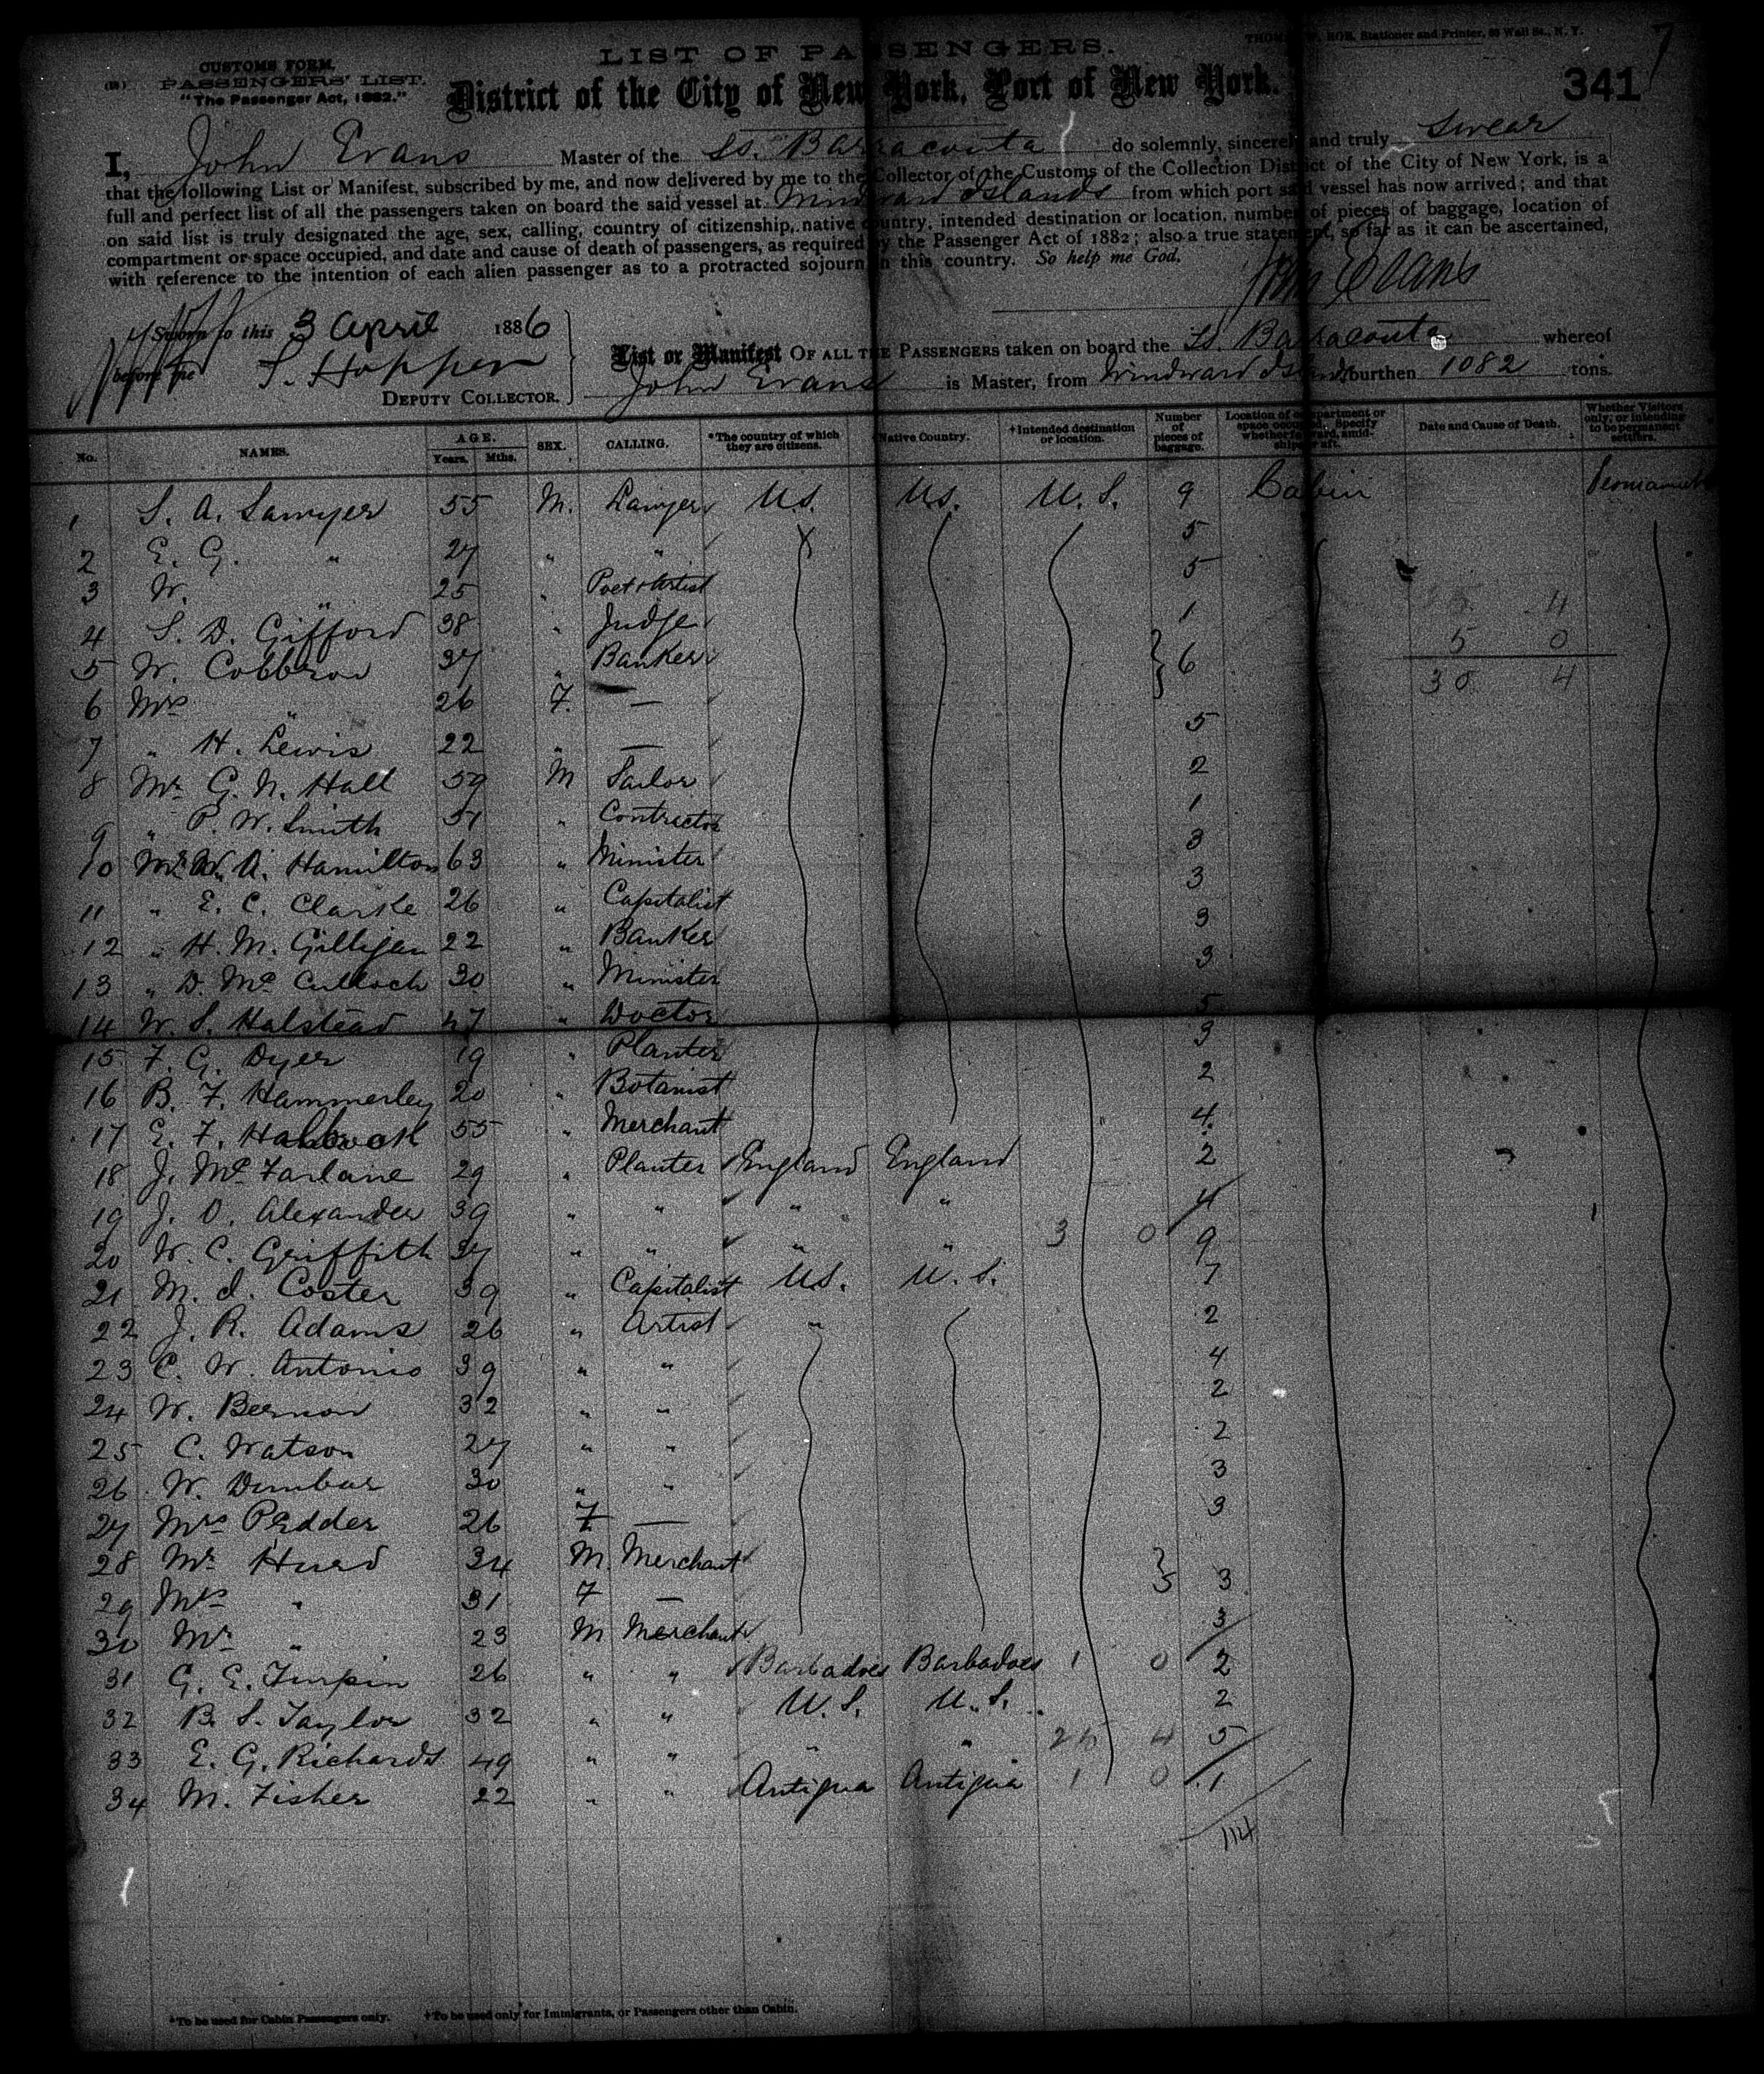 LIST OF PASSENGERS.
THOMAS W. ROE, Stationer and Printer, 88 Wall St., N. Y.
CUSTOMS FORM.
PASSENGERS' LIST.
"The Passenger Act, 1882."
District of the City of New York, Port of New York.
341
I, John Evans Master of the ss. Barracouta do solemnly, sincerely and truly swear
that the following List or Manifest, subscribed by me, and now delivered by me to the Collector of the Customs of the Collection District of the City of New York, is a
full and perfect list of all the passengers taken on board the said vessel at Windward Islands from which port said vessel has now arrived; and that
on said list is truly designated the age, sex, calling, country of citizenship, native country, intended destination or location, number of pieces of baggage, location of
compartment or space occupied, and date and cause of death of passengers, as required by the Passenger Act of 1882; also a true statement, so far as it can be ascertained,
with reference to the intention of each alien passenger as to a protracted sojourn in this country. So help me God.
John Evans
Sworn to this 3 April 1886
before me S. Hopper
DEPUTY COLLECTOR.
List or Manifest OF ALL THE PASSENGERS taken on board the ss. Barracouta whereof
John Evans is Master, from Windward Islands burthen 1082 tons.
No. NAMES. AGE. Years. Mths. SEX. CALLING. *The country of which they are citizens. †Native Country. †Intended destination or location. Number of pieces of baggage. Location of compartment or space occupied. Specify whether forward, amidships or aft. Date and Cause of Death. Whether Visitors only, or intending to be permanent settlers.
1 S. A. Sawyer 55 M. Lawyer U.S. U.S. U.S. 9 Cabin Permanent
2 E. G. " 27 " " 5
3 W. " 25 " Poet & Artist 5
4 S. D. Gifford 38 " Judge 1
5 W. Cobbron 37 " Banker 6
6 Mrs " 26 F. —
7 " H. Lewis 22 " — 5
8 Mr G. N. Hall 59 M Tailor 2
9 " P. W. Smith 51 " Contractor 1
10 Mr W. A. Hamilton 63 " Minister 3
11 " E. C. Clarke 26 " Capitalist 3
12 " H. M. Gilligan 22 " Banker 3
13 " D. McCulloch 30 " Minister 3
14 W. S. Halstead 47 " Doctor 5
15 F. G. Dyer 19 " Planter 3
16 B. F. Hammerley 20 " Botanist 2
17 E. F. 55 " Merchant 4
18 J. McFarlane 29 " Planter England England 2
19 J. O. Alexander 39 " " " " 4
20 W. C. Griffith 37 " " " " 3 0 9
21 M. I. Coster 39 " Capitalist U.S. U.S. 7
22 J. R. Adams 26 " Artist " 2
23 C. W. Antonio 39 " " 4
24 W. Bernon 32 " " 2
25 C. Watson 27 " " 2
26 W. Dunbar 30 " " 3
27 Mrs Pedder 26 F — 3
28 Mr Hurd 34 M. Merchant
29 Mrs " 31 F — 3
30 Mr " 23 M Merchant 3
31 G. E. Turpin 26 " " Barbadoes Barbadoes 1 0 2
32 B. S. Taylor 32 " " U.S. U.S. 2
33 E. G. Richards 49 " " " " 5
34 M. Fisher 22 " " Antigua Antigua 1 0 1
114
*To be used for Cabin Passengers only. †To be used only for Immigrants, or Passengers other than Cabin.